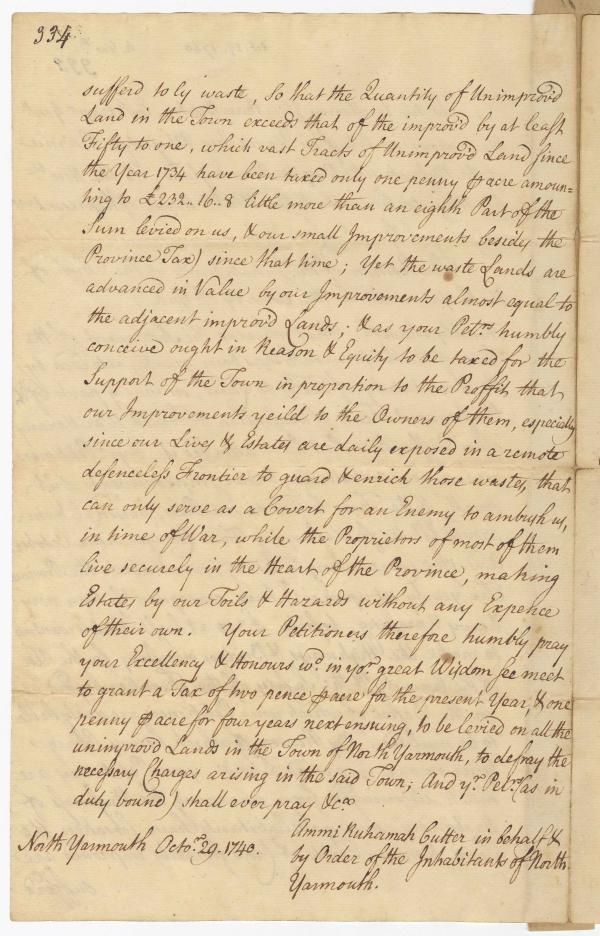 334
sufferd to ly waste, So that the Quantity of Unimprov'd
Land in the Town exceeds that of the improv'd by at least
Fifty to one, which vast Tracts of Unimprov'd Land since
the Year 1734 have been taxed only one penny ⅌ acre amoun=
ting to £232..16..8 little more than an eighth Part of the
Sum levied on us, & our small Improvements besides the
Province Tax) since that time; Yet the waste Lands are
advanced in Value by our Improvements almost equal to
the adjacent improv'd Lands; & as your Petrs. humbly
conceive ought in Reason & Equity to be taxed for the
Support of the Town in proportion to the Proffit that
our Improvements yeild to the Owners of them, especially
since our Lives & Estates are daily exposed in a remote
defenceless Frontier to guard & enrich those wastes, that
can only serve as a Covert for an Enemy to ambush us,
in time of War, while the Proprietors of most of them
live securely in the Heart of the Province, making
Estates by our Toils & Hazards without any Expence
of their own. Your Petitioners therefore humbly pray
your Excellency & Honours wd. in yor. great Wisdom see meet
to grant a Tax of two pence ⅌ acre for the present Year, & one
penny ⅌ acre for four years next ensuing, to be levied on all the
unimprov'd Lands in the Town of North Yarmouth, to defray the
necessary Charges arising in the said Town; And yr. Petrs. (as in
duty bound) shall ever pray &ca
Ammi Ruhamah Cutter in behalf &
North Yarmouth Octor. 29. 1740. by Order of the Inhabitants of North
Yarmouth.